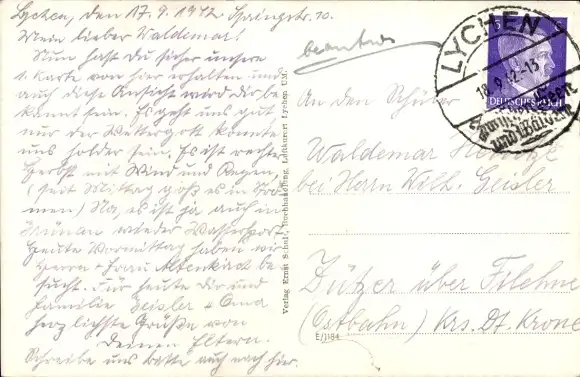 Lychen, den 17.9.1942 Springstr. 10.
Mein lieber Waldemar!
Nun hast du sicher unsere
1. Karte von hier erhalten und
auch diese Ansicht wird dir be
kannt sein. Es geht uns gut
nur der Wettergott könnte
uns holder sein. Es ist rechter
Herbst mit Wind und Regen,
(seit Mittag goß es in Strö
men) Na, es ist ja auch im
Grünen wieder Wassersport.
Heute Vormittag haben wir
Herrn + Frau Altenkirch be
sucht. Für heute dir und
Familie Geisler + Oma
herzlichste Grüße von
Deinen Eltern.
Schreibe uns bitte auch nach hier.
Verlag Ernst Schulz, Buchhandlung, Luftkurort Lychen U.M.
E/1184
LYCHEN
18.9.42.-13
zwischen
und Wäldern
DEUTSCHES REICH
An den Schüler
Waldemar
bei Herrn Wilh. Geisler
über Filehne
(Ostbahn) Krs. Dt. Krone